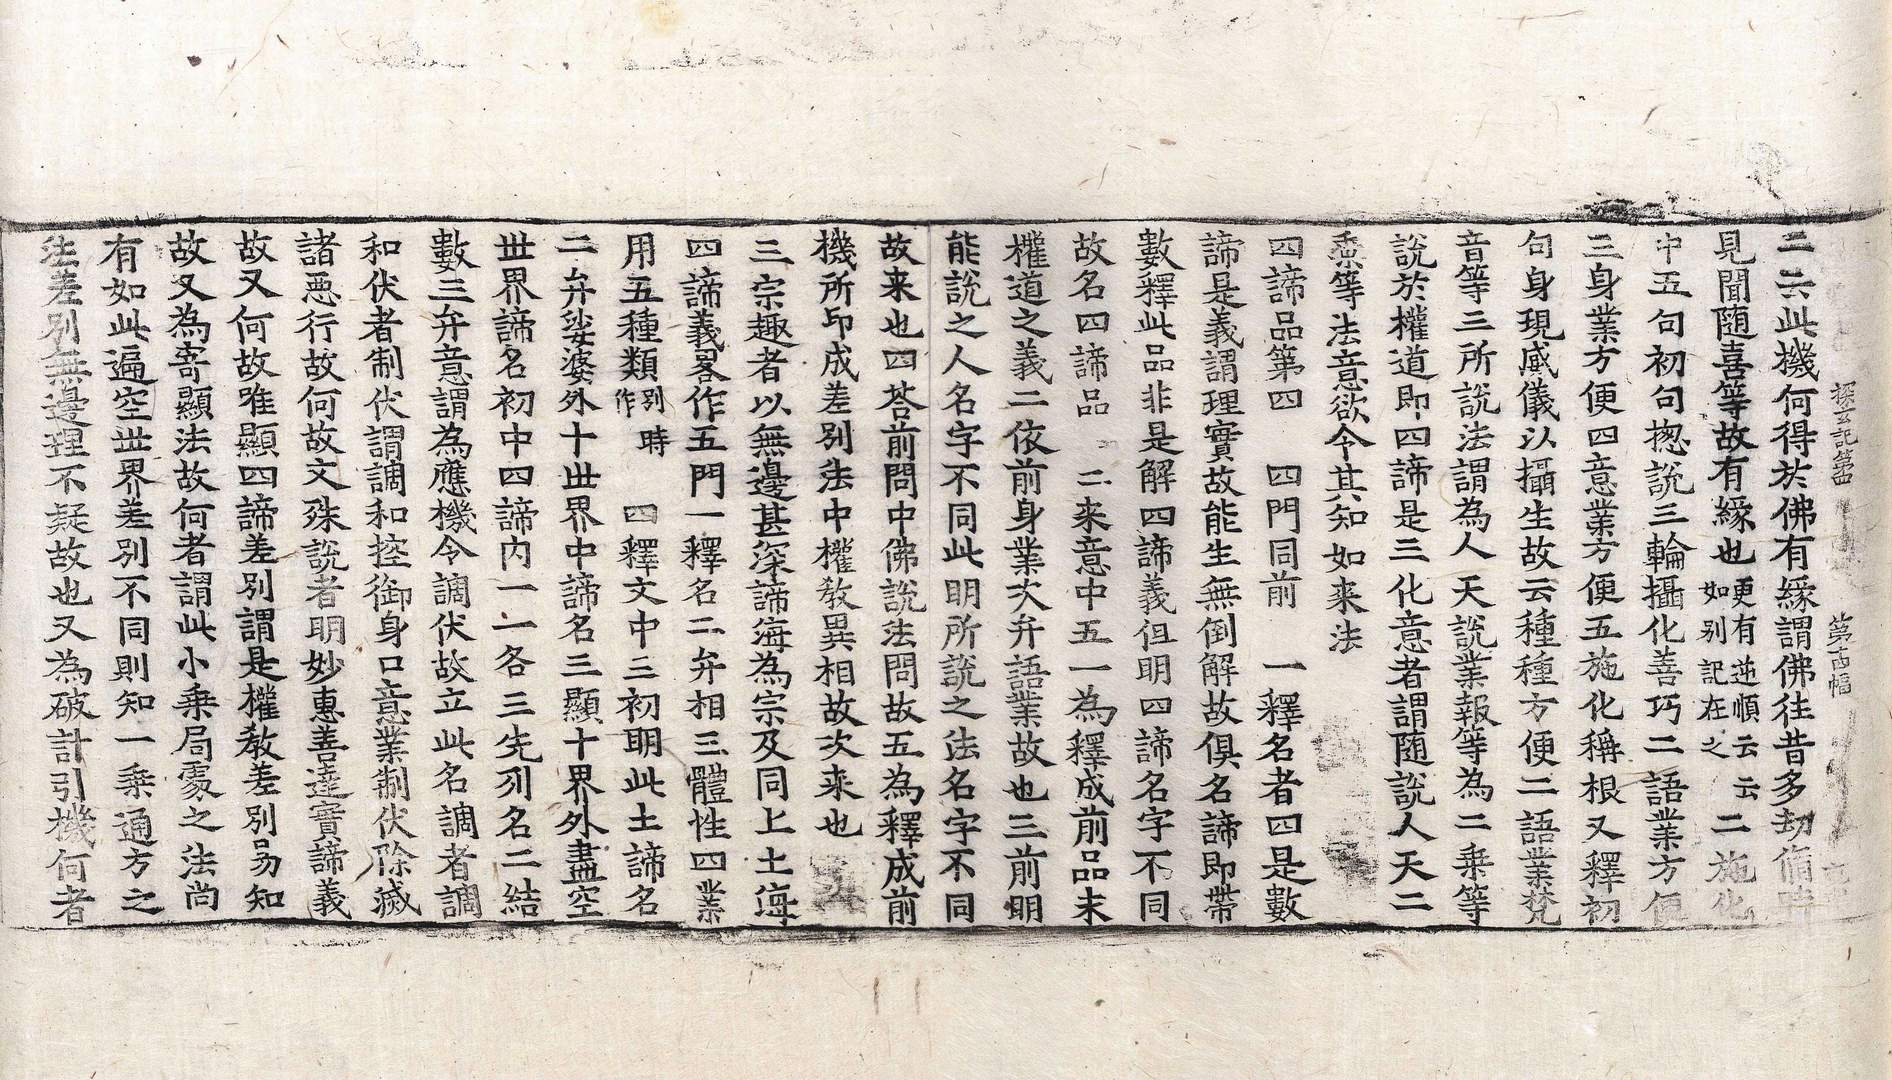 探玄記第四　第十四幅
二云此機何得於佛有緣謂佛往昔多劫脩時
見聞随喜等故有緣也更有逆順云云如别記在之二施化
中五句初句揔説三輪攝化善巧二語業方便
三身業方便四意業方便五施化稱根又釋初
句身現威儀以攝生故云種種方便二語業梵
音等三所說法謂為人天說業報等為二乗等
說於權道即四諦是三化意者謂随說人天二
乗等法意欲令其知如来法
四諦品第四　四門同前　一釋名者四是數
諦是義謂理實故能生無倒解故俱名諦即帶
數釋此品非是解四諦義但明四諦名字不同
故名四諦品　二来意中五一為釋成前品末
權道之義二依前身業次弁語業故也三前明
能說之人名字不同此明所說之法名字不同
故来也四荅前問中佛說法問故五為釋成前
機所卬成差别法中權教異相故次来也
三宗趣者以無邊甚深諦海為宗及同上土海
四諦義畧作五門一釋名二弁相三體性四業
用五種類别時作　四釋文中三初明此土諦名
二弁娑婆外十世界中諦名三顯十界外盡空
世界諦名初中四諦内一一各三先列名二結
數三弁意謂為應機令調伏故立此名調者調
和伏者制伏謂調和控御身口意業制伏除滅
諸惡行故何故文殊說者明妙惠善達實諦義
故又何故唯顯四諦差别謂是權教差别易知
故又為寄顯法故何者謂此小乗局䖏之法尚
有如此遍空世界差别不同則知一乗通方之
法差别無邊理不疑故也又為破計引機何者